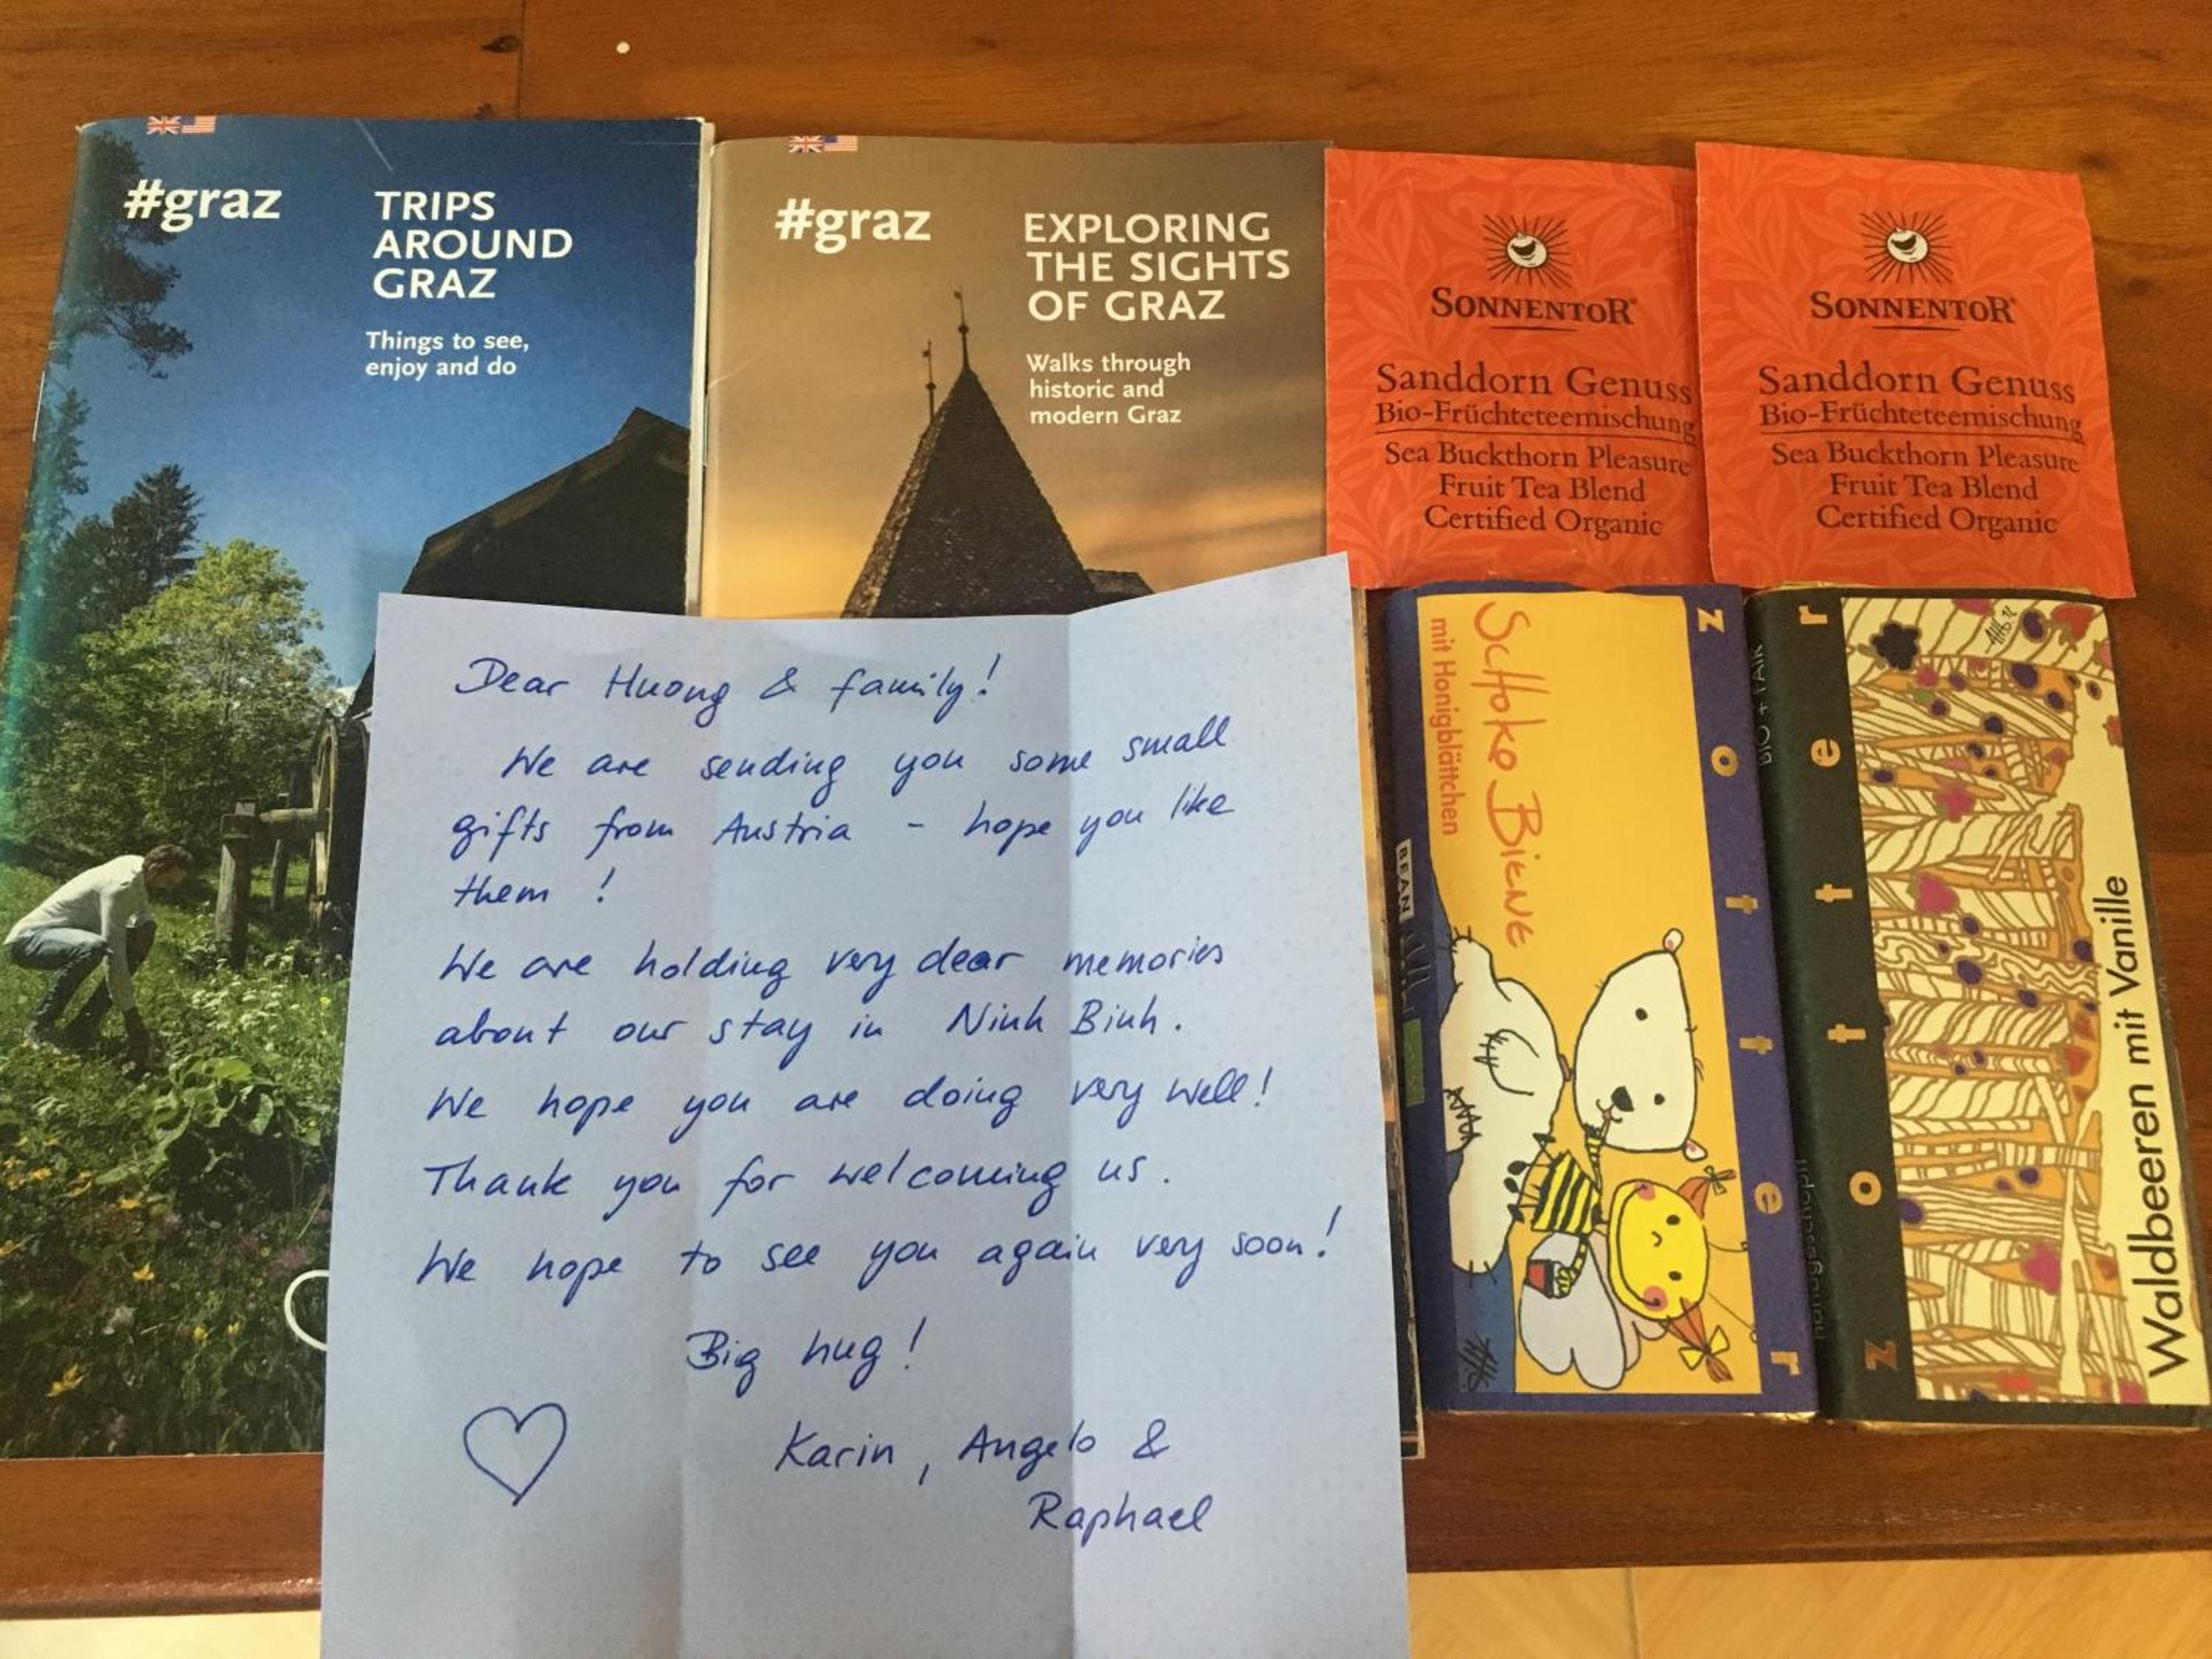 #graz
TRIPS
AROUND
GRAZ
Things to see,
enjoy and do
#graz
EXPLORING
THE SIGHTS
OF GRAZ
Walks through
historic and
modern Graz
SONNENTOR®
Sanddorn Genuss
Bio-Früchteteemischung
Sea Buckthorn Pleasure
Fruit Tea Blend
Certified Organic
SONNENTOR®
Sanddorn Genuss
Bio-Früchteteemischung
Sea Buckthorn Pleasure
Fruit Tea Blend
Certified Organic
Dear Huong & family!
We are sending you some small
gifts from Austria - hope you like
them !
We are holding very dear memories
about our stay in Ninh Binh.
We hope you are doing very well!
Thank you for welcoming us.
We hope to see you again very soon!
Big hug!
Karin, Angelo &
Raphael
SCHOKO BIENE
mit Honigblättchen
BEAN
zotter
BIO + FAIR
handgeschöpft
zotter
Waldbeeren mit Vanille